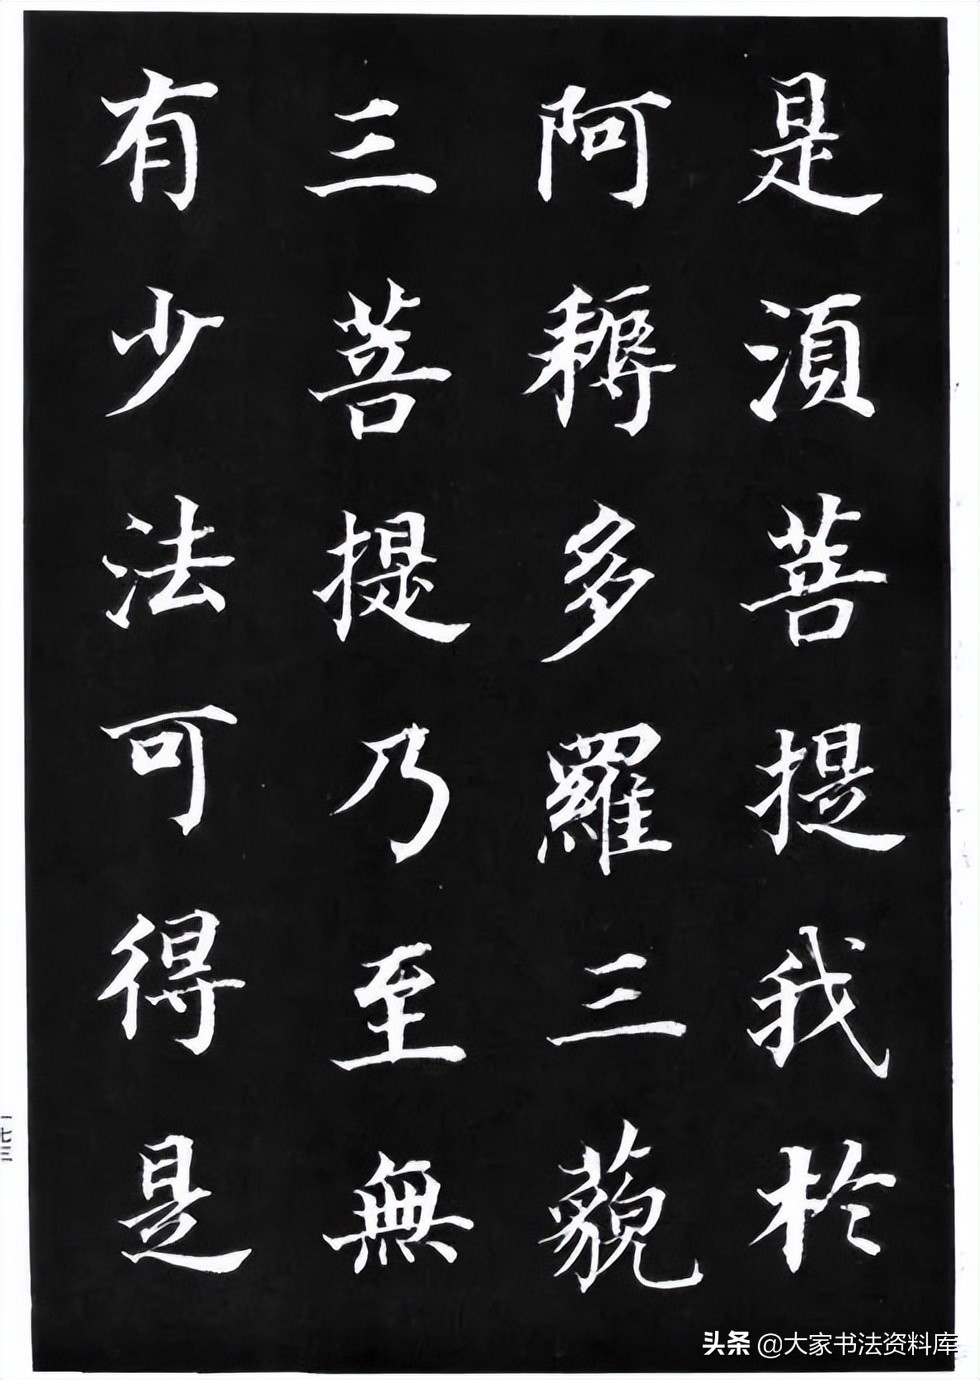 是須菩提我於
阿耨多羅三藐
三菩提乃至無
有少法可得是
一七三
头条 @大家书法资料库